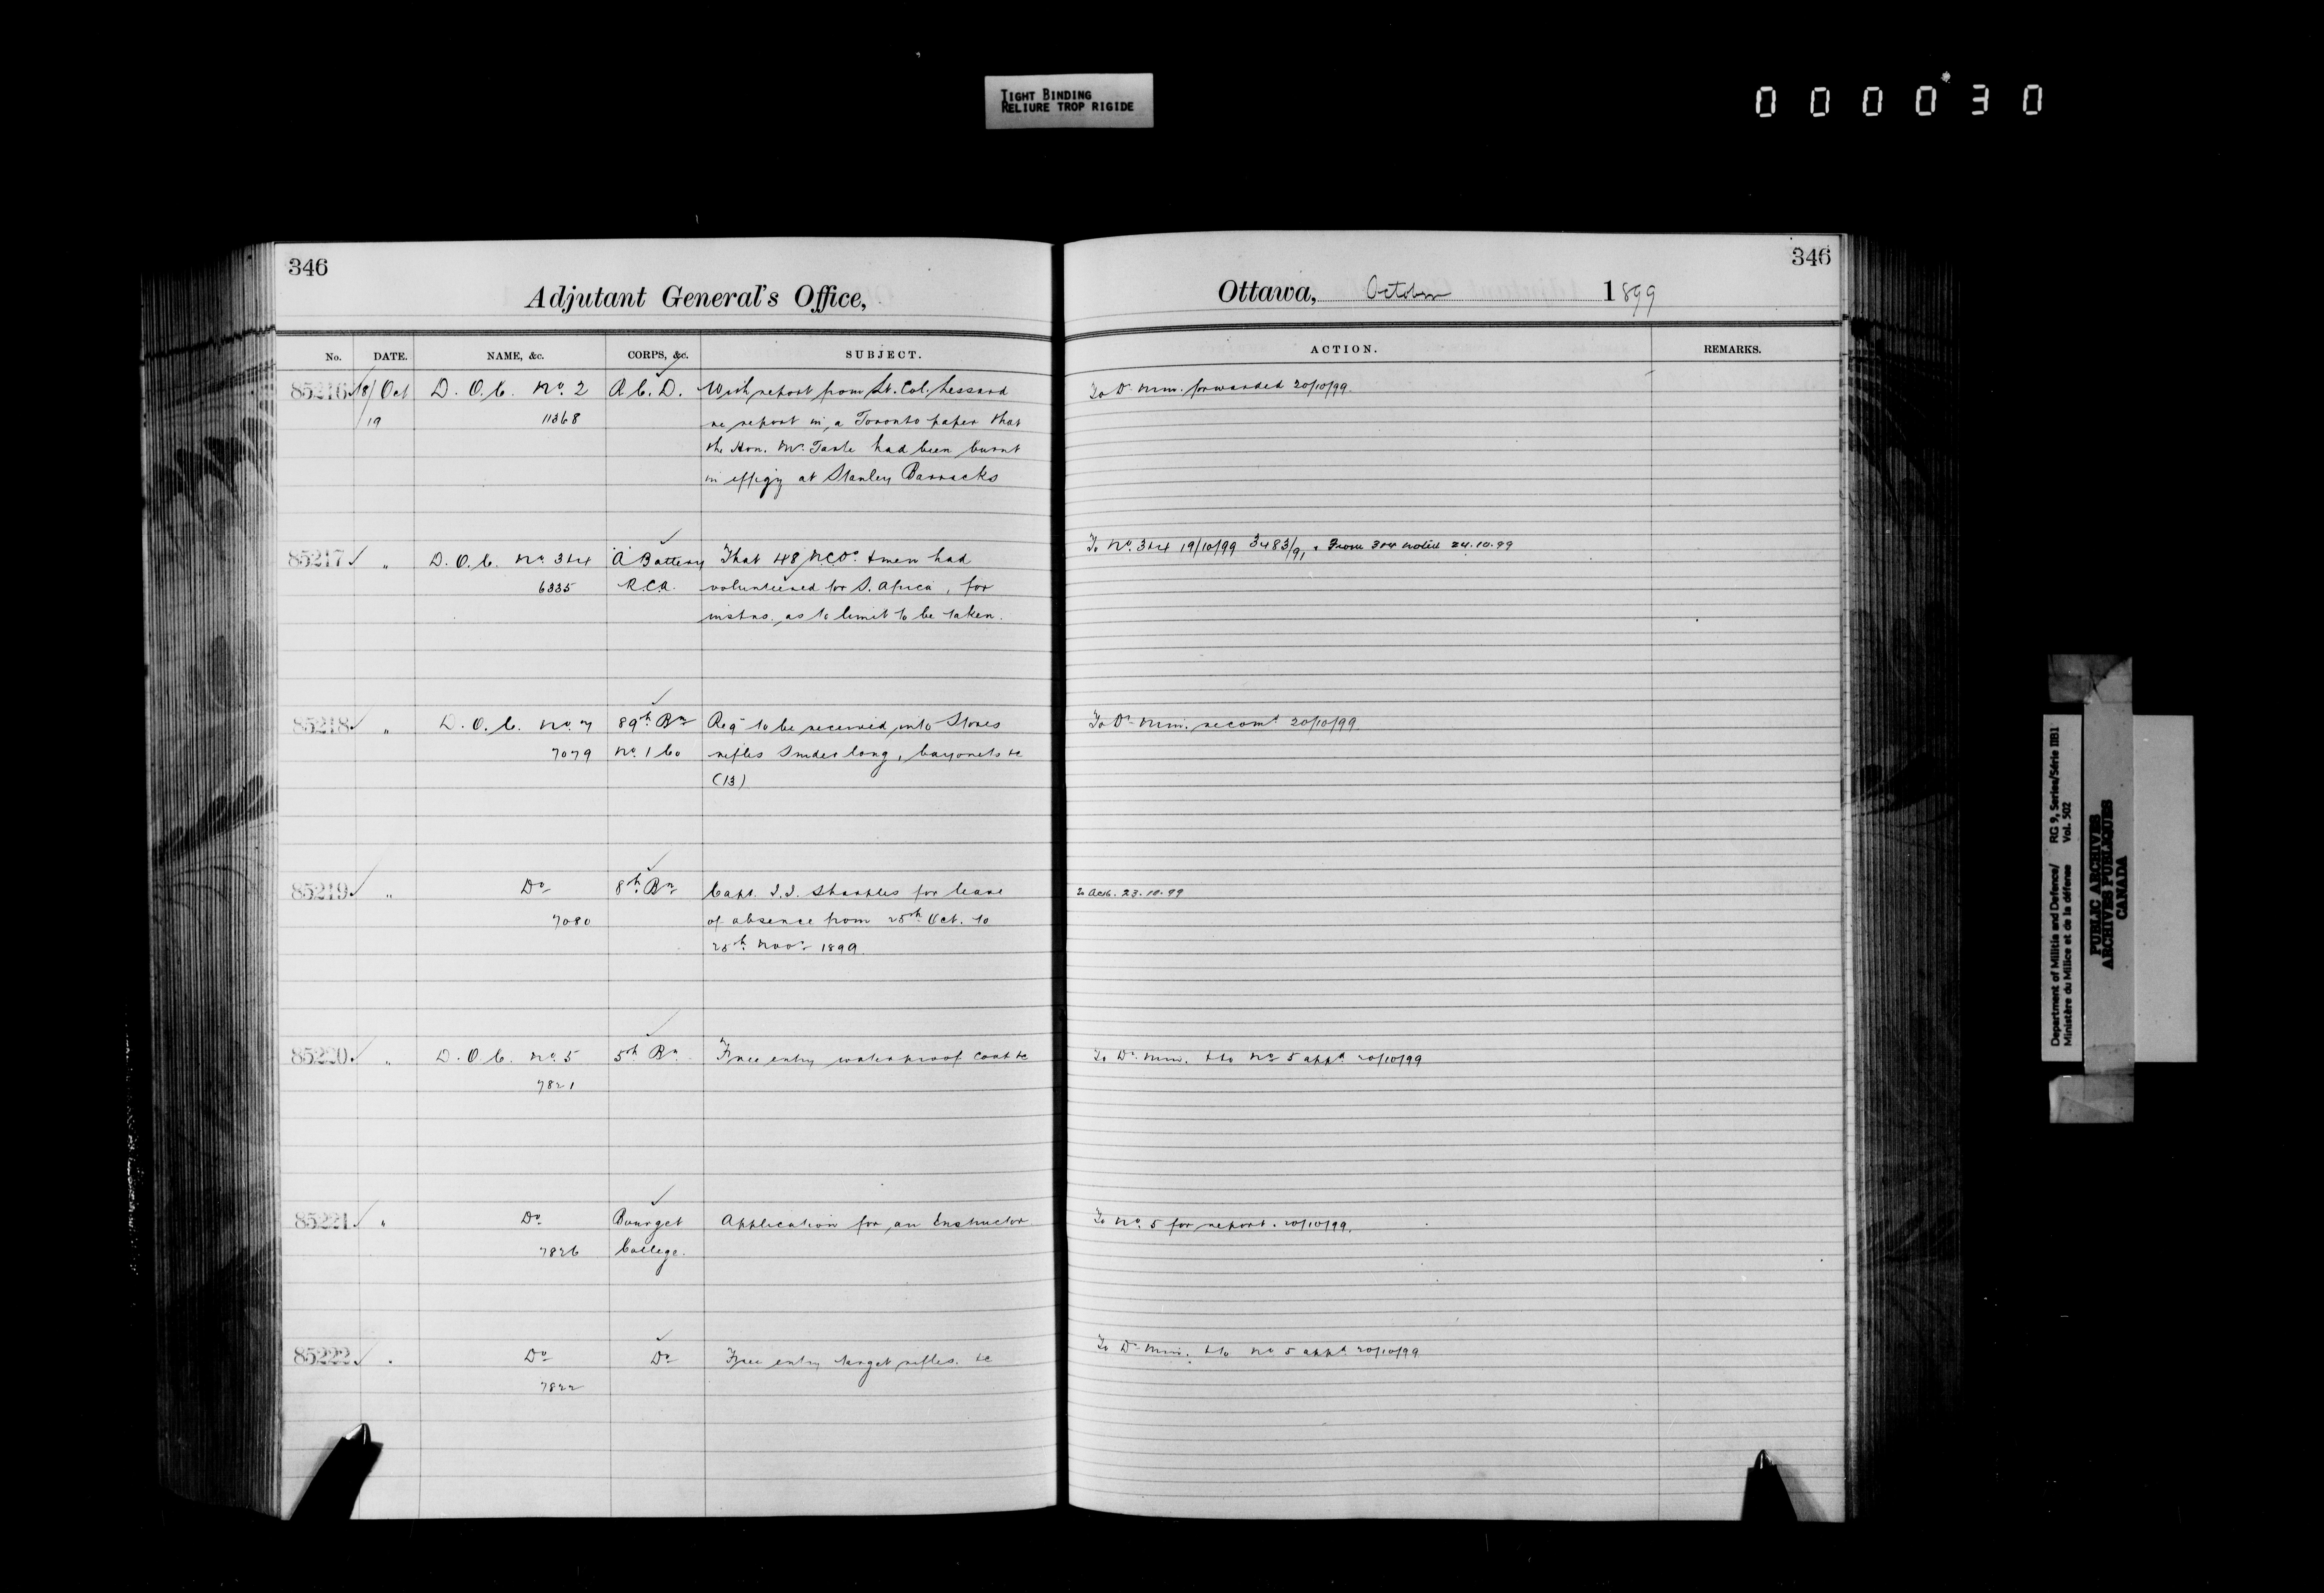 TIGHT BINDING
RELIURE TROP RIGIDE
000030
346
Adjutant General's Office,
No. DATE. NAME, &c. CORPS, &c. SUBJECT.
85216 18/ Oct D.O.C. No. 2 R.C.D. With report from Lt. Col. Lessard
19 11368 re report in a Toronto paper that
the Hon. Mr. Tarte had been burnt
in effigy at Stanley Barracks
85217 " D.O.C. No. 3&4 "A" Battery That 48 NCOs. & men had
6335 R.C.A. volunteered for S. Africa, for
instns. as to limit to be taken.
85218 " D.O.C. No. 7 89th Bn Reqn to be received into Stores
7079 No. 1 Co rifles Snider long, bayonets &c
(13)
85219 " Do 8th Bn Capt. J.J. Sharples for leave
7080 of absence from 25th Oct. to
25th Novr 1899.
85220 " D.O.C. No. 5 5th Bn. Free entry waterproof coat &c
7821
85221 " Do Bourget Application for an Instructor
7826 College.
85222 " Do Do Free entry target rifles. &c
7822
346
Ottawa, October 1899
ACTION. REMARKS.
To Dr. Min. forwarded 20/10/99.
To No. 3&4 19/10/99 3483/91. From 3&4 24.10.99
To Dr. Min. recomd 20/10/99.
23.10.99
To Dr. Min. & to No 5 appd 20/10/99
To No. 5 for report. 20/10/99.
To Dr. Min. & to No 5 appd 20/10/99
Department of Militia and Defence/ RG 9, Series/Série IIB1
Ministère du Milice et de la défense Vol. 502
PUBLIC ARCHIVES
ARCHIVES PUBLIQUES
CANADA